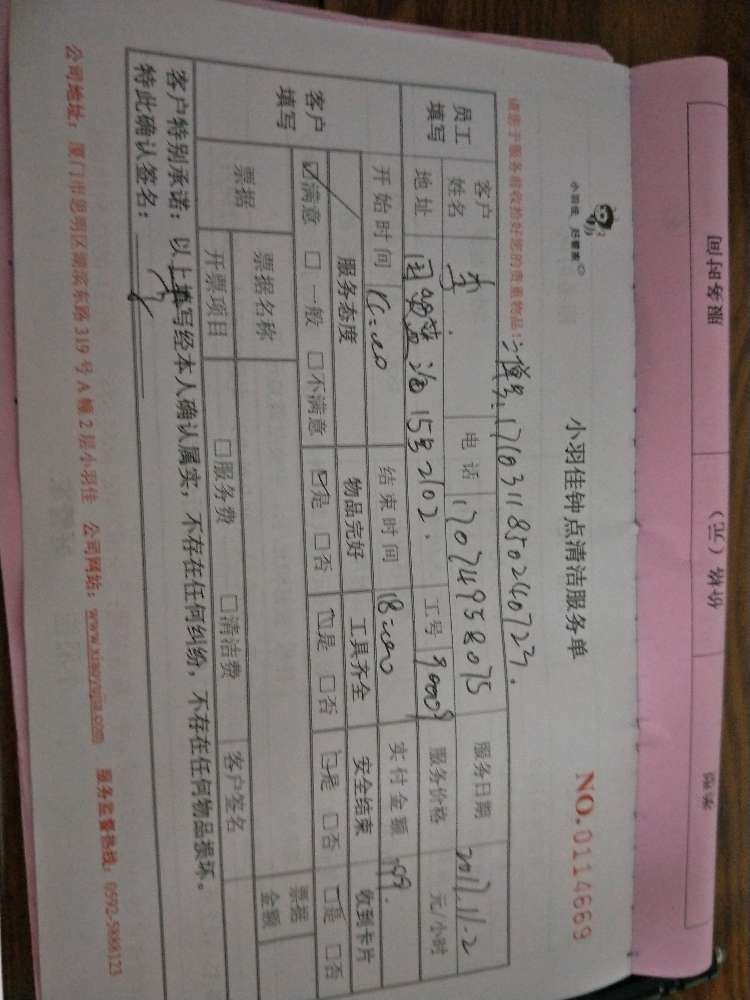 服务时间
价格（元）
备案
小羽佳 好管家
小羽佳钟点清洁服务单
NO.0114669
请您于服务前收拾好您的贵重物品！
171031185024072
员工填写
客户姓名
李
电话
17074958075
服务日期
2017.11.2
地址
15号2102
工号
90009
服务价格
元/小时
客户填写
开始时间
结束时间
18:00
实付金额
服务态度
物品完好
工具齐全
安全结束
收到卡片
☑满意 □一般 □不满意
☑是 □否
☑是 □否
□是 □否
□是 □否
票据
票据名称
票据金额
开票项目
□服务费
□清洁费
客户签名
客户特别承诺：以上填写经本人确认属实，不存在任何纠纷，不存在任何物品损坏。
特此确认签名：
公司地址：厦门市思明区湖滨东路319号A幢2层小羽佳 公司网站：www.xiaoyujia.com 服务监督热线：0592-5888123